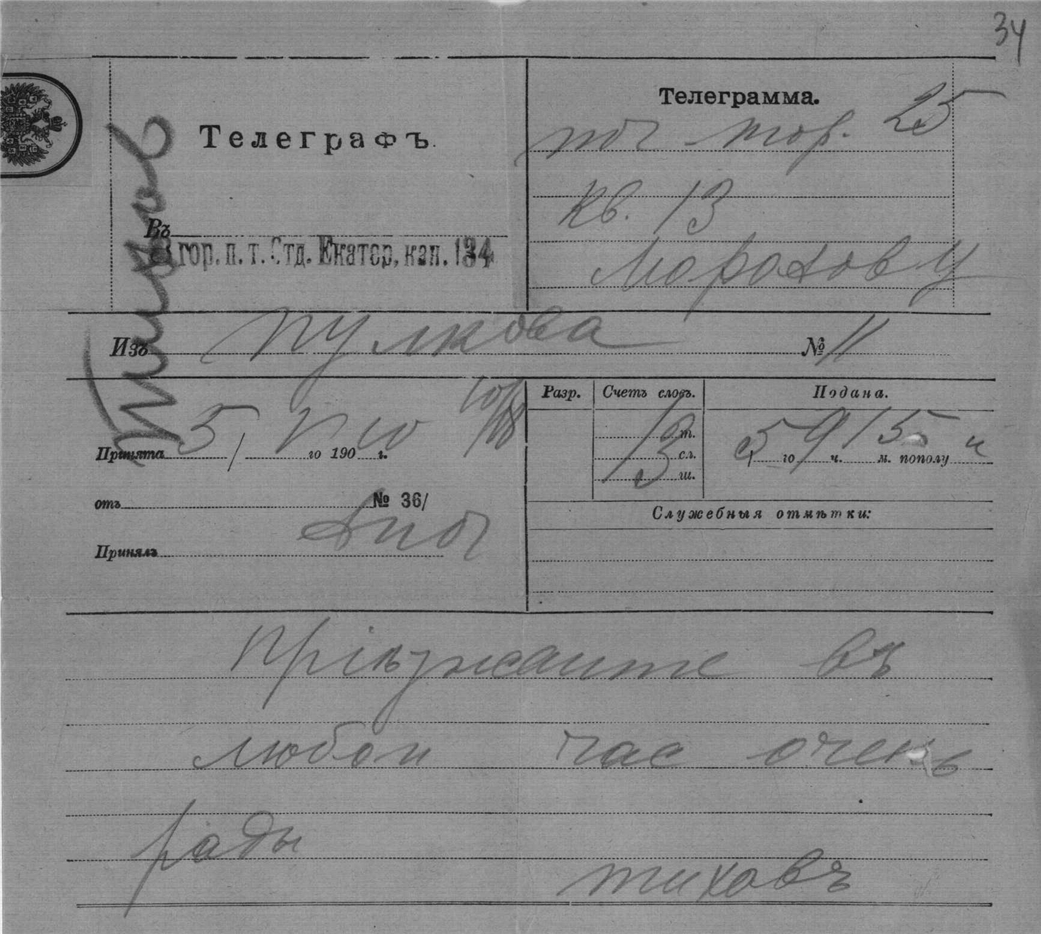 34
Телеграфъ.
Тихов
Въ
гор. п. т. Отд. Екатер. кан. 134
Телеграмма.
тор. 25
кв. 13
Изъ Пулкова № 11
Принята 5/ го 190 г.
отъ № 36/
Принялъ
Разр. Счетъ словъ. Подана.
13 т.
сл.
ш.
5 го 9 ч. 15 м. пополу н
Служебныя отмѣтки:
Пріѣзжаите въ
любои час очень
рады
тиховъ